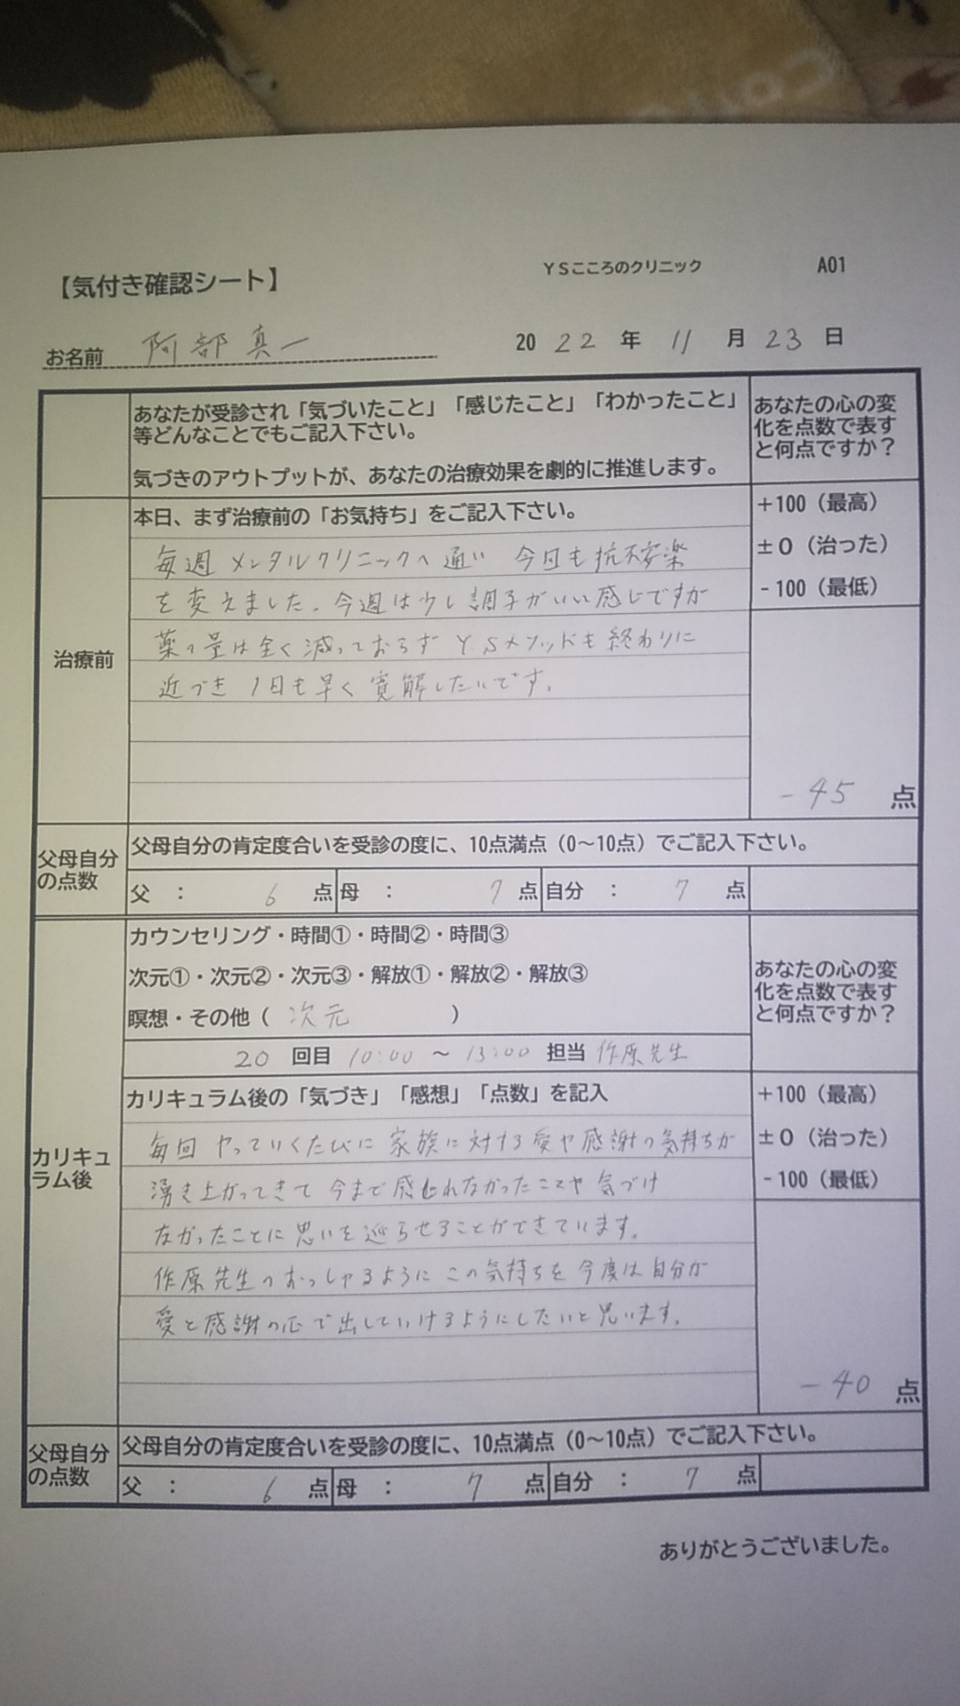 【気付き確認シート】 YSこころのクリニック A01
お名前 阿部真一 2022年11月23日
あなたが受診され「気づいたこと」「感じたこと」「わかったこと」
等どんなことでもご記入下さい。
気づきのアウトプットが、あなたの治療効果を劇的に推進します。
あなたの心の変
化を点数で表す
と何点ですか？
治療前
本日、まず治療前の「お気持ち」をご記入下さい。
毎週メンタルクリニックへ通い 今日も抗不安薬
を変えました。今週は少し調子がいい感じですが
薬の量は全く減っておらずYSメソッドも終わりに
近づき 1日も早く寛解したいです。
+100（最高）
±0（治った）
-100（最低）
-45 点
父母自分
の点数
父母自分の肯定度合いを受診の度に、10点満点（0～10点）でご記入下さい。
父 ： 6 点 母 ： 7 点 自分 ： 7 点
カリキュ
ラム後
カウンセリング・時間①・時間②・時間③
次元①・次元②・次元③・解放①・解放②・解放③
瞑想・その他（ 次元 ）
20 回目 10:00 ～ 13:00 担当 作原先生
あなたの心の変
化を点数で表す
と何点ですか？
カリキュラム後の「気づき」「感想」「点数」を記入
毎回 やっていくたびに 家族に対する愛や感謝の気持ちが
湧き上がってきて 今まで感じれなかったことや 気づけ
なかったことに思いを巡らせることができています。
作原先生のおっしゃるように この気持ちを 今度は自分が
愛と感謝の心で出していけるようにしたいと思います。
+100（最高）
±0（治った）
-100（最低）
-40 点
父母自分
の点数
父母自分の肯定度合いを受診の度に、10点満点（0～10点）でご記入下さい。
父 ： 6 点 母 ： 7 点 自分 ： 7 点
ありがとうございました。